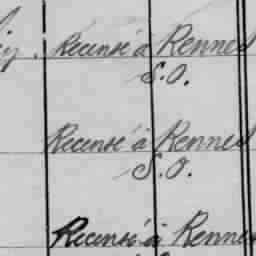 Recensé à Rennes
S.O.
Recensé à Rennes
S.O.
Recensé à Rennes